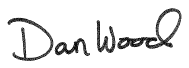 Dan Wood